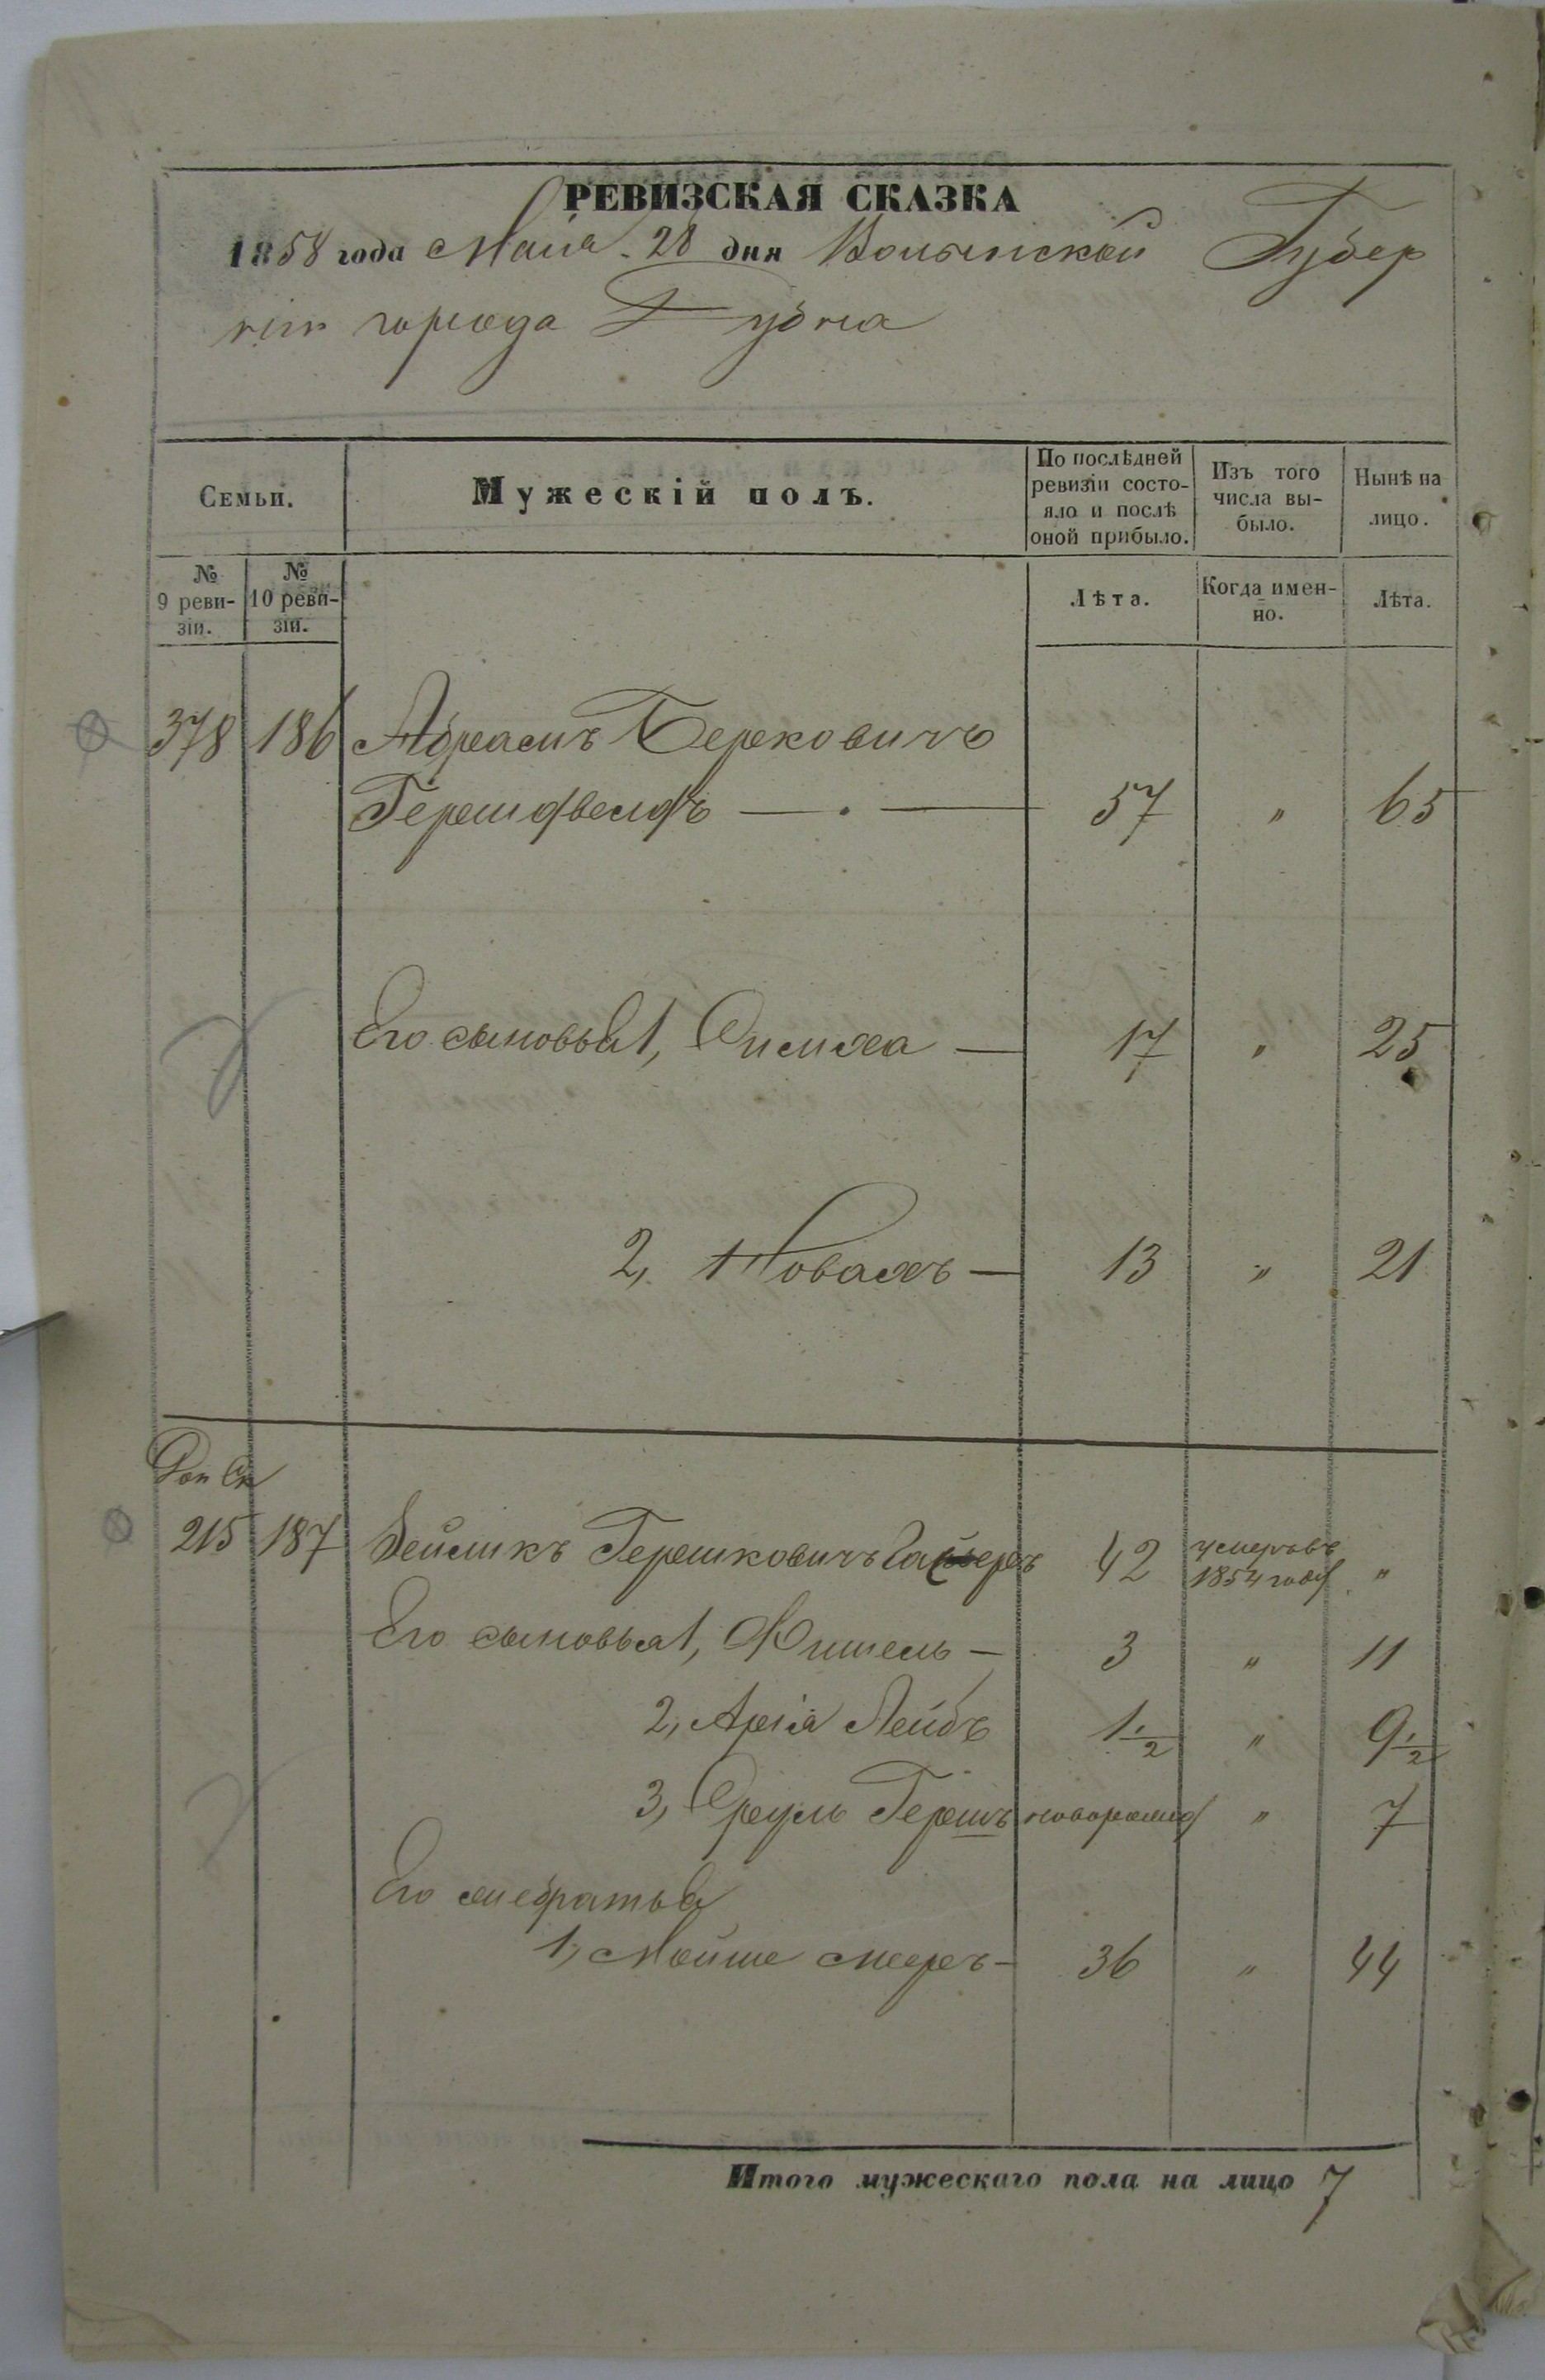 РЕВИЗСКАЯ СКАЗКА
1858 года Маія 28 дня Волынской Губер
ніи города Дубна
Семьи.
Мужескій полъ.
По послѣдней ревизіи состо-
яло и послѣ оной прибыло.
Изъ того числа вы-
было.
Нынѣ на лицо.
№ 9 реви-
зіи.
№ 10 реви-
зіи.
Лѣта.
Когда имен-
но.
Лѣта.
378 186 Абрамъ Берковичъ
Гершфельдъ — 57 " 65
Его сыновья 1, Симха — 17 " 25
2, Новахъ — 13 " 21
Доп Ск
215 187 Зейликъ Гершковичъ 42 умеръ въ 1854 году "
Его сыновья 1, Фишель — 3 " 11
2, Аріа Лейбъ 1 1/2 " 9 1/2
3, Сруль Гершъ новорожд " 7
Его же братья
1, Мойше Мееръ — 36 " 44
Итого мужескаго пола на лицо 7